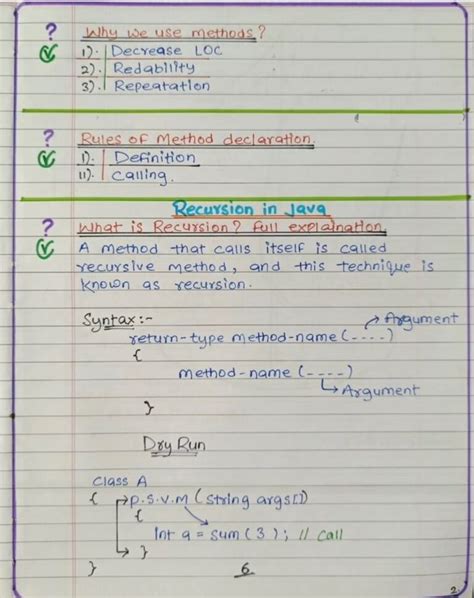 ? Why we use methods?
1). Decrease LOC
2). Redability
3). Repeatation
? Rules of Method declaration.
1). Definition
11). calling.
Recursion in Java
? What is Recursion? full explaination
A method that calls itself is called
recursive method, and this technique is
known as recursion.
Syntax :-
Argument
return-type method-name (----)
{
method-name (----)
Argument
}
Dry Run
Class A
{ p.s.v.m (string args[])
{
Int a = sum (3); // call
}
} 6
2